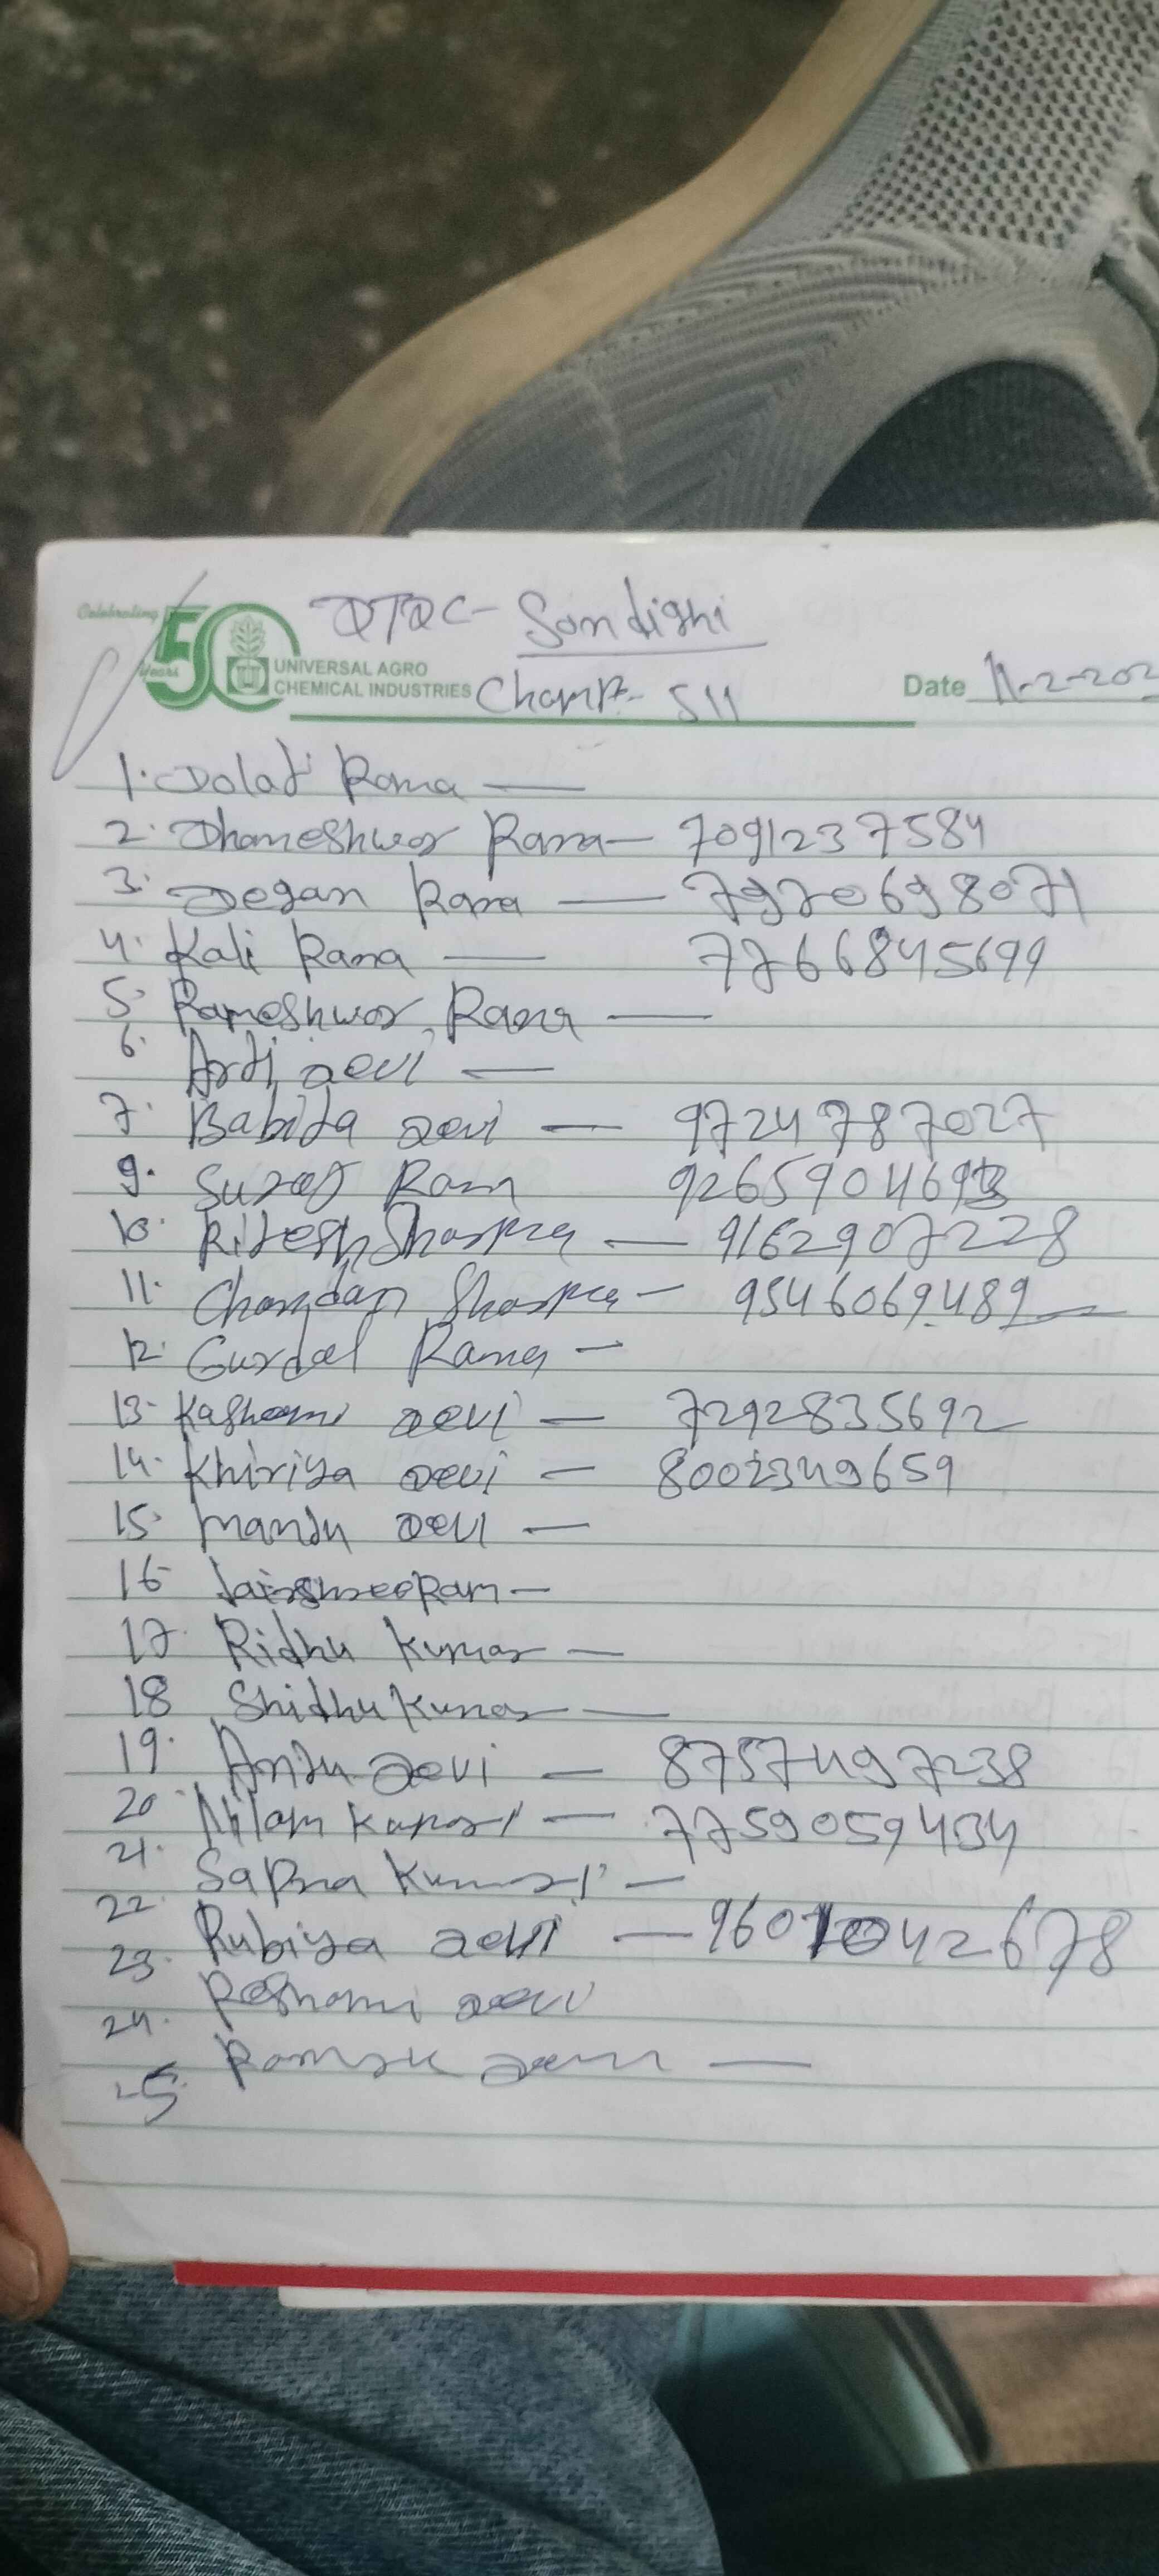 Celebrating 50 Years
DTDC - Sondighi
UNIVERSAL AGRO
CHEMICAL INDUSTRIES
Champ - 511
Date 11-2-202
1. Dolat Rama —
2. Dhaneshwor Rana — 7091237584
3. Degan Rana — 7970698071
4. Kali Rana — 7766845699
5. Rameshwor Rana —
6. Arti Devi —
7. Babita Devi — 9724787027
9. Suraj Ram
10. Ritesh Sharma — 9162907228
11. Chandan Sharma — 9546069489
12. Gurdal Rana —
13. Kashami Devi — 7292835692
14. Khiriya Devi — 8002349659
15. Manju Devi —
16 Jaishreeram —
17. Ridhu Kumar —
18 Shidhu Kumar —
19. Anju Devi — 8757497238
20. Nilam Kumari — 7759059434
21. Sapna Kumari —
22. Rubiya Devi —
23. Reshami Devi
24.
25.